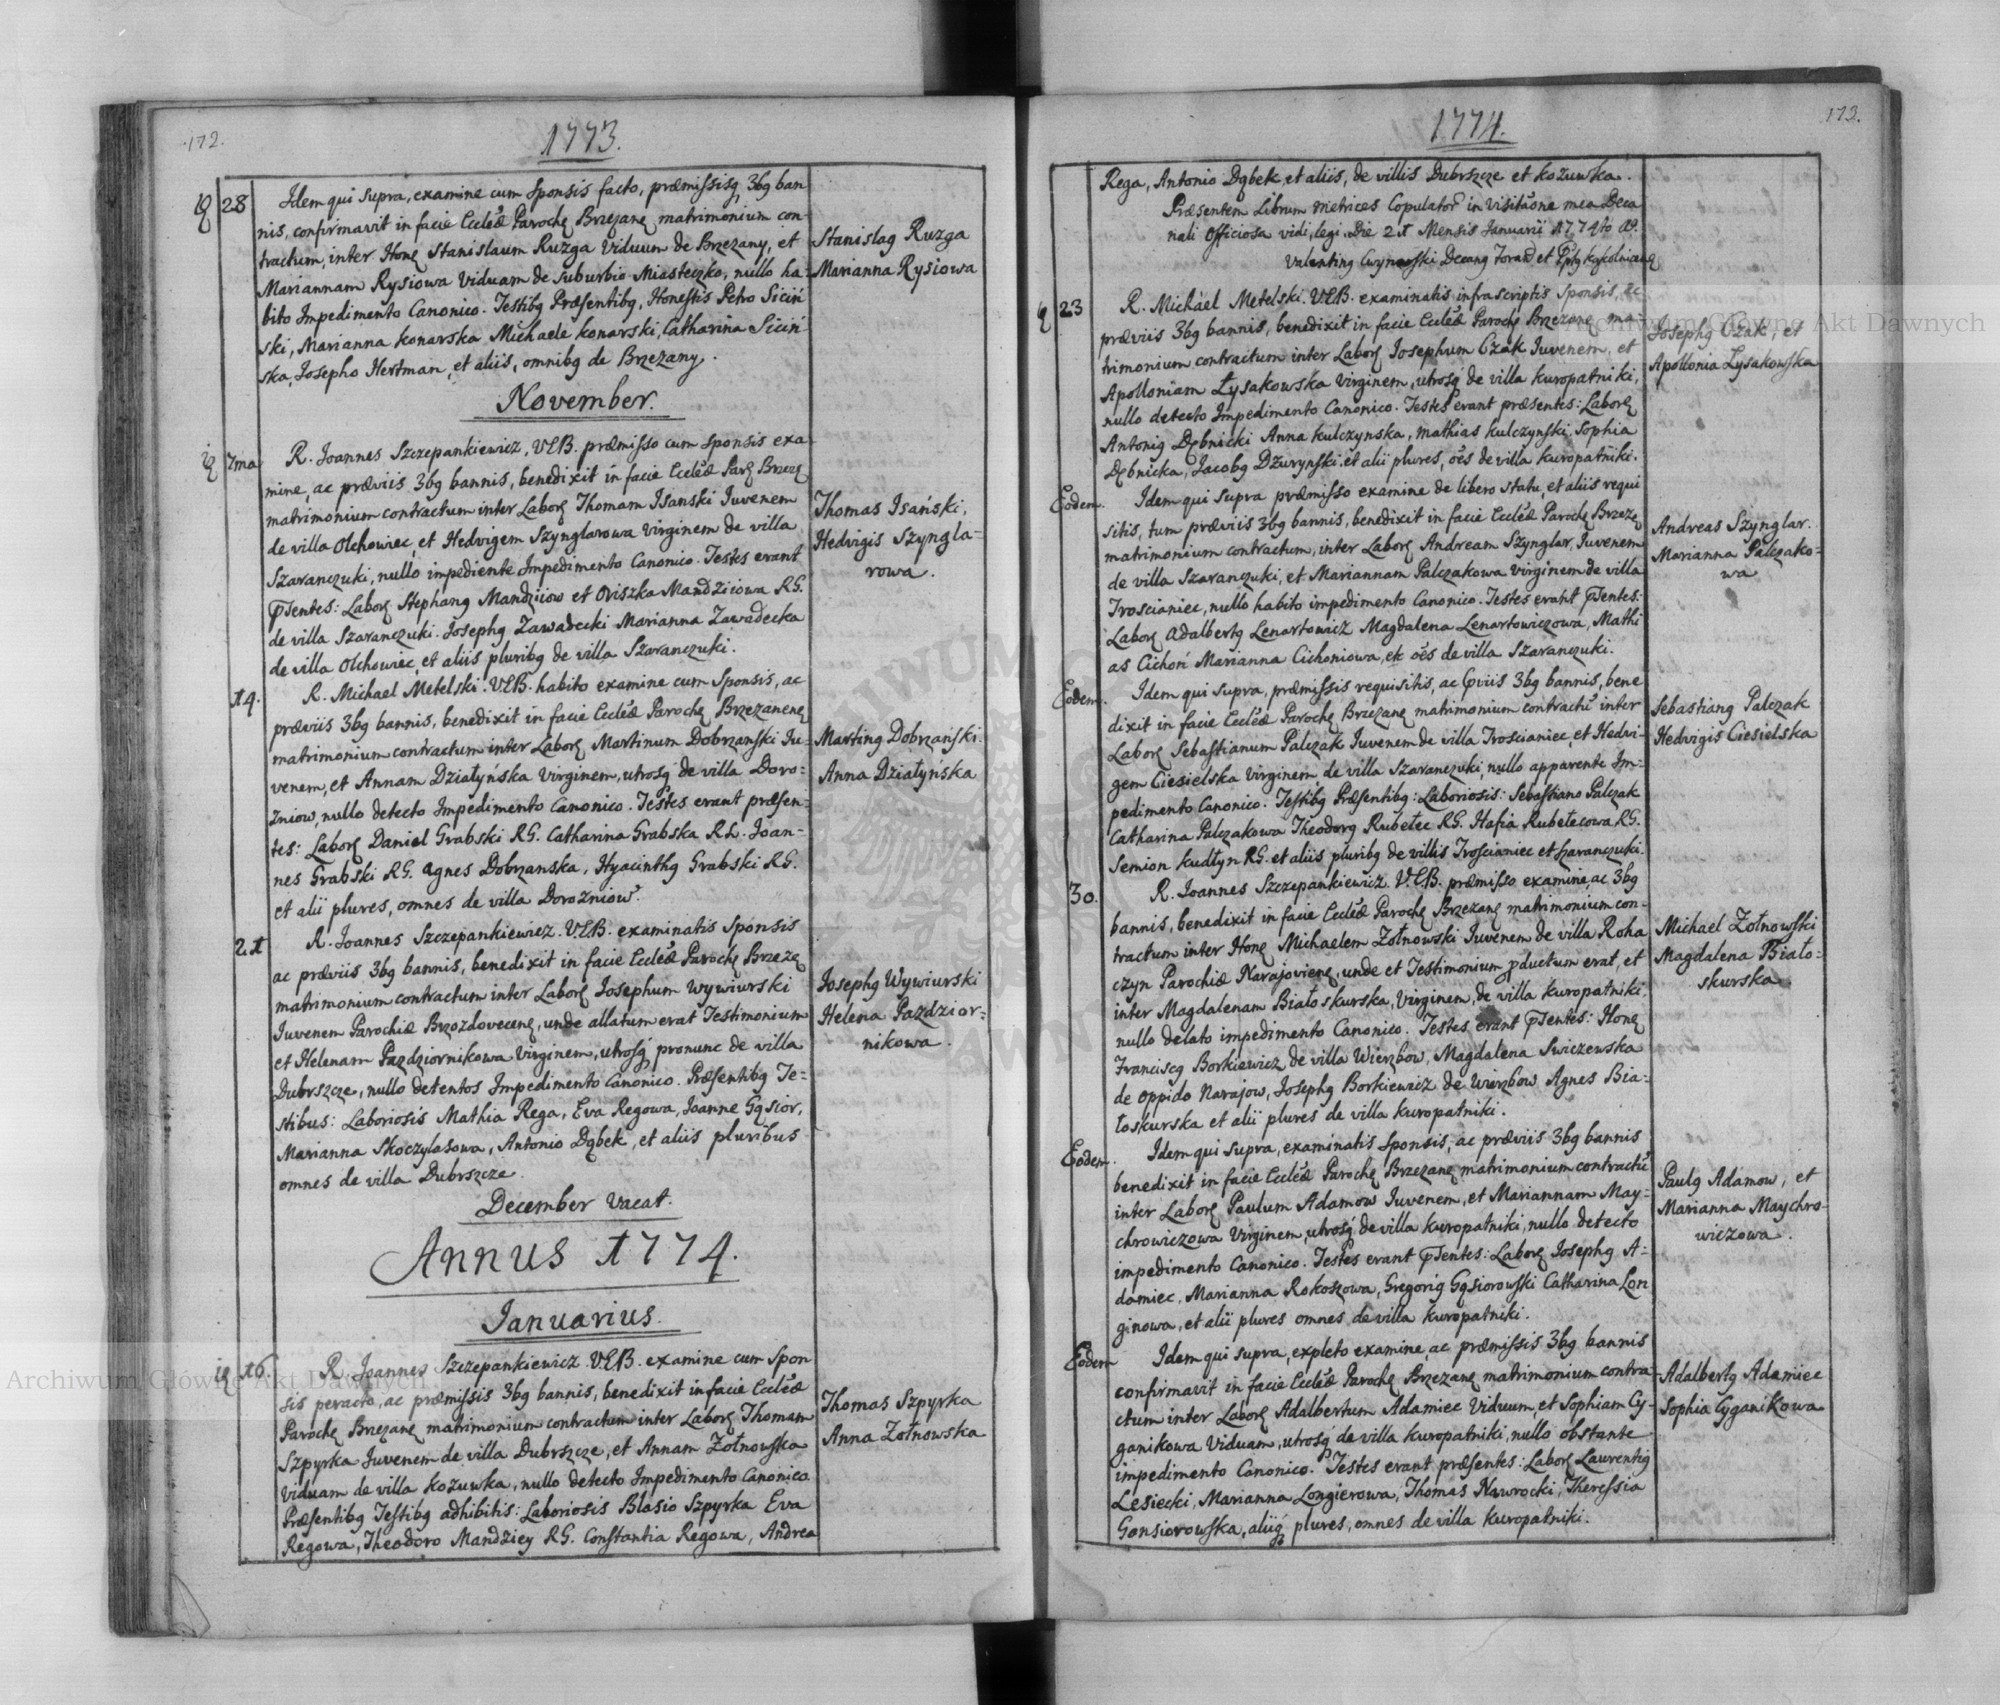 172.
1773.
28
Idem qui supra, examine cum Sponsis facto, præmissisq 3bg ban
nis, confirmavit in facie Eccleæ Paroche Brzezane matrimonium con
tractum, inter Hone Stanislaum Ruzga Viduum de Brzezany, et
Mariannam Rysiowa Viduam de suburbio Miasteczko, nullo ha
bito Impedimento Canonico. Testibg Præsentibg, Honestis Petro Siciń
ski, Marianna Konarska, Michaele Konarski, Catharina Siciń
ska, Josepho Hertman, et aliis, omnibg de Brzezany.
Stanislag Ruzga
Marianna Rysiowa
November.
7ma
R. Joannes Szczepankiewicz, VEB. præmisso cum Sponsis exa
mine, ac præviis 3bg bannis, benedixit in facie Eccleæ Pare Brzeze
matrimonium contractum inter Labore Thomam Isanski Iuvenem
de villa Olchowiec, et Hedvigem Szynglarowa Virginem de villa
Szaranczuki, nullo impediente Impedimento Canonico. Testes erant
pTentes: Labore Stephang Mandziiow et Oriszka Mandziiowa RG.
de villa Szaranczuki. Josephg Zawadecki Marianna Zawadecka
de villa Olchowiec, et aliis pluribg de villa Szaranczuki.
Thomas Isański.
Hedvigis Szyngla=
rowa.
14.
R. Michael Metelski. VEB. habito examine cum Sponsis, ac
præviis 3bg bannis, benedixit in facie Eccleæ Paroche Brzezanene
matrimonium contractum inter Labore Martinum Dobrzanski Iu=
venem, et Annam Działyńska Virginem, utrosq de villa Doro=
zniow, nullo detecto Impedimento Canonico. Testes erant præsen=
tes: Labore Daniel Grabski RG. Catharina Grabska RL. Joan=
nes Grabski RG. Agnes Dobrzanska, Hyacinthg Grabski RG.
et alii plures, omnes de villa Dorozniow.
Marting Dobrzański.
Anna Działyńska
21
R. Joannes Szczepankiewicz. VEB. examinatis Sponsis
ac præviis 3bg bannis, benedixit in facie Eccleæ Paroche Brzeze
matrimonium contractum inter Labore Josephum Wywiurski
Iuvenem Parochiæ Brzozdovecene, unde allatum erat Testimonium
et Helenam Pazdziornikowa Virginem, utrosq pronunc de villa
Dubrszcze, nullo detentos Impedimento Canonico. Præsentibg Te=
stibus: Laboriosis Mathia Rega, Eva Regowa, Joanne Gąsior,
Marianna Skoczylasowa, Antonio Dąbek, et aliis pluribus
omnes de villa Dubrszcze.
Josephg Wywiurski
Helena Pazdzior=
nikowa.
December Vacat.
Annus 1774.
Ianuarius.
16
R. Joannes Szczepankiewicz. VEB. examine cum Spon
sis peracto, ac præmissis 3bg bannis, benedixit in facie Eccleæ
Paroche Brzezane matrimonium contractum inter Labore Thomam
Szpyrka Iuvenem de villa Dubrszcze, et Annam Żołnowska
Viduam de villa Kozuwka, nullo detecto Impedimento Canonico.
Præsentibg Testibg adhibitis: Laboriosis Blasio Szpyrka Eva
Regowa, Theodoro Mandziey RG. Constantia Regowa, Andrea
Thomas Szpyrka
Anna Żołnowska
173.
1774.
Rega, Antonio Dąbek, et aliis, de villis Dubrszcze et Kozuwka.
Præsentem Librum Metrices Copulator in Visitaone mea Deca
nali Officiosa vidi, legi. Die 21 Mensis Januarii 1774to
Valenting Cwynarski Decang
23
R. Michael Metelski. VEB. examinatis infrascriptis Sponsis, ac
præviis 3bg bannis, benedixit in facie Eccleæ Paroche Brzezane ma=
trimonium contractum inter Labore Josephum Czak Iuvenem, et
Apolloniam Łysakowska Virginem, utrosq de villa Kuropatniki,
nullo detecto Impedimento Canonico. Testes erant præsentes: Labore
Antonig Dębnicki Anna Kulczynska, Mathias Kulczynski, Sophia
Dębnicka, Jacobg Dzurynski, et alii plures, oes de villa Kuropatniki.
Josephg Czak, et
Apollonia Łysakowska
Eodem.
Idem qui supra præmisso examine de libero statu, et aliis requi
sitis, tum præviis 3bg bannis, benedixit in facie Eccleæ Paroche Brzeze
matrimonium contractum, inter Labore Andream Szynglar, Iuvenem
de villa Szaranczuki, et Mariannam Palczakowa Virginem de villa
Troscianiec, nullo habito impedimento Canonico. Testes erant pTentes:
Labore Adalbertg Lenartowicz Magdalena Lenartowiczowa, Mathi
as Cichoń Marianna Cichoniowa, et oes de villa Szaranczuki.
Andreas Szynglar.
Marianna Palczako=
wa
Eodem.
Idem qui supra, præmissis requisitis, ac pviis 3bg bannis, bene
dixit in facie Eccleæ Paroche Brzezane matrimonium contractu inter
Labore Sebastianum Palczak Iuvenem de villa Troscianiec, et Hedvi=
gem Ciesielska Virginem de villa Szaranczuki, nullo apparente Im=
pedimento Canonico. Testibg Præsentibg: Laboriosis: Sebastiano Palczak
Catharina Palczakowa Theodorg Rubełec RG. Hafia Rubełecowa RG.
Semion Kudłyn RG. et aliis pluribg de villis Troscianiec et Szaranczuki.
Sebastiang Palczak
Hedvigis Ciesielska
30.
R. Joannes Szczepankiewicz. VEB. præmisso examine, ac 3bg
bannis, benedixit in facie Eccleæ Paroche Brzezane matrimonium con=
tractum inter Hone Michaelem Żołnowski Iuvenem de villa Roha
czyn Parochiæ Narajoviene, unde et Testimonium pductum erat, et
inter Magdalenam Białoskurska, Virginem, de villa Kuropatniki,
nullo delato impedimento Canonico. Testes erant pTentes: Hone
Franciscg Borkiewicz de villa Wierzbow, Magdalena Swiczewska
de oppido Narajow, Josephg Borkiewicz de Wierzbow Agnes Bia=
łoskurska et alii plures de villa Kuropatniki.
Michael Żołnowski
Magdalena Biało=
skurska
Eodem.
Idem qui supra, examinatis Sponsis, ac præviis 3bg bannis
benedixit in facie Eccleæ Paroche Brzezane matrimonium contractu
inter Labore Paulum Adamow Iuvenem, et Mariannam May=
chrowiczowa Virginem, utrosq de villa Kuropatniki, nullo detecto
impedimento Canonico. Testes erant pTentes: Labore Josephg A=
damiec, Marianna Rokoszowa, Gregorig Gąsiorowski Catharina Lon
ginowa, et alii plures omnes de villa Kuropatniki.
Paulg Adamow, et
Marianna Maychro=
wiczowa.
Eodem
Idem qui supra, expleto examine, ac præmissis 3bg bannis
confirmavit in facie Eccleæ Paroche Brzezane matrimonium contra=
ctum inter Labore Adalbertum Adamiec Viduum, et Sophiam Cy=
ganikowa Viduam, utrosq de villa Kuropatniki, nullo obstante
impedimento Canonico. Testes erant præsentes: Labore Laurentig
Lesiecki, Marianna Longierowa, Thomas Nawrocki, Theressia
Gonsiorowska, aliiq plures, omnes de villa Kuropatniki.
Adalbertg Adamiec
Sophia Cyganikowa
Archiwum Główne Akt Dawnych
Archiwum Główne Akt Dawnych